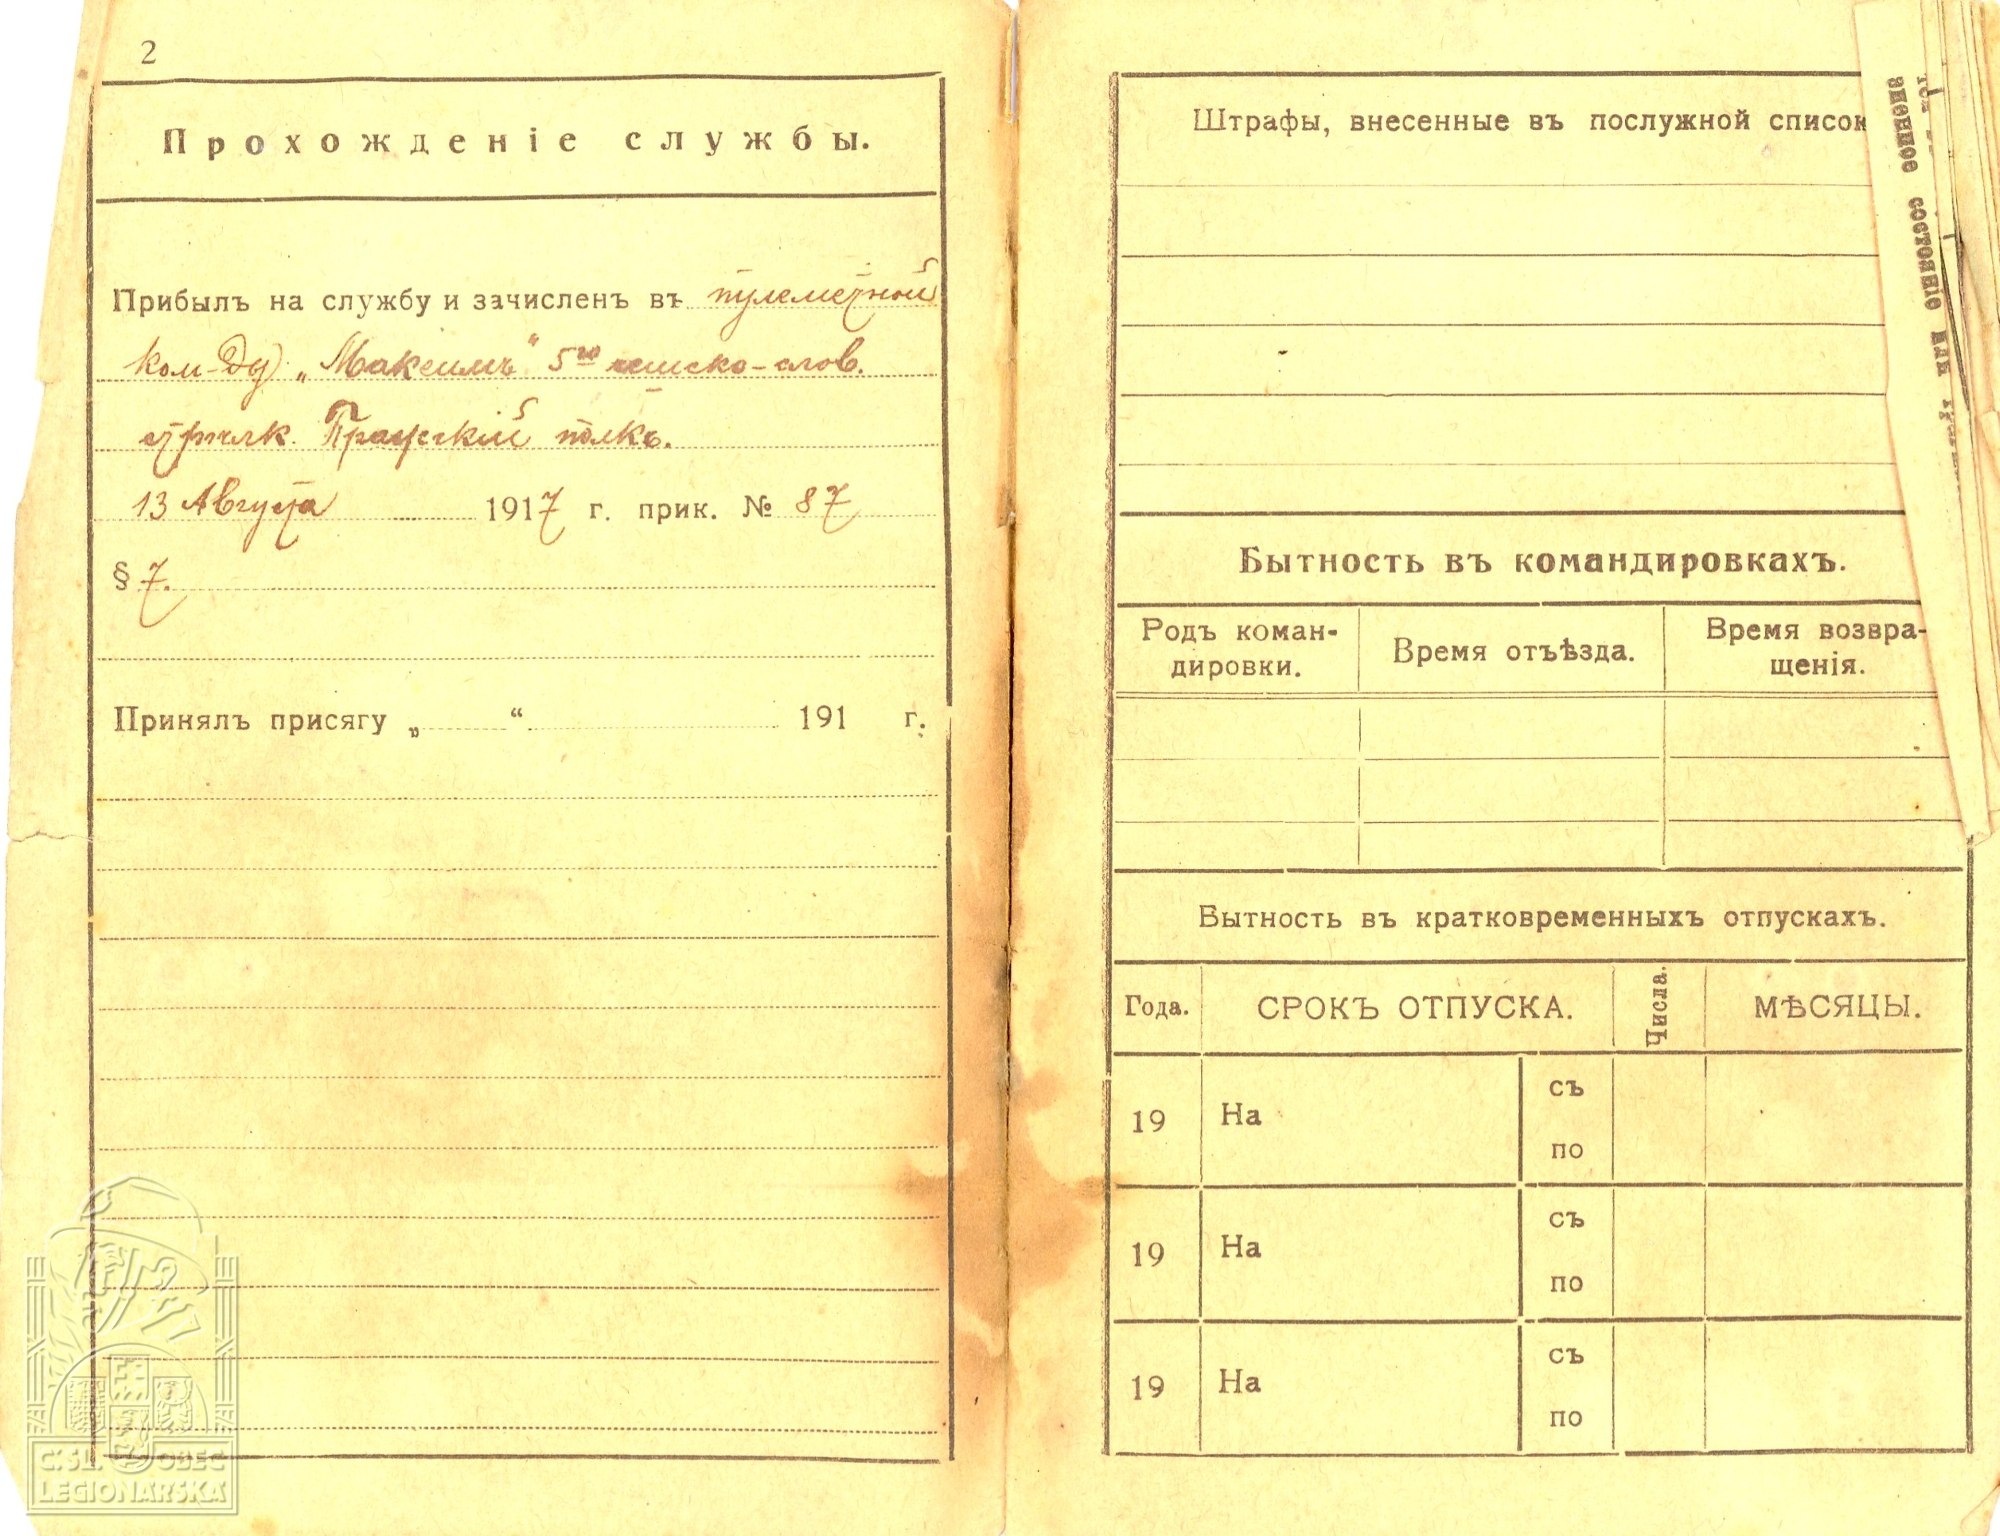 2
Прохожденіе службы.
Прибылъ на службу и зачисленъ въ пулеметной
ком-ду „Максимъ“ 5го чешско-слов.
стрѣлк. Пражскій полкъ.
13 Августа 1917 г. прик. № 87
§ 7.
Принялъ присягу „ “ 191 г.
C. SL. OBEC
LEGIONÁRSKÁ
Штрафы, внесенные въ послужной список
Бытность въ командировкахъ.
Родъ коман-
дировки.
Время отъѣзда.
Время возвра-
щенія.
Бытность въ кратковременныхъ отпускахъ.
Года. СРОКЪ ОТПУСКА. Числа. МѢСЯЦЫ.
19 На съ
по
19 На съ
по
19 На съ
по
состояніе или